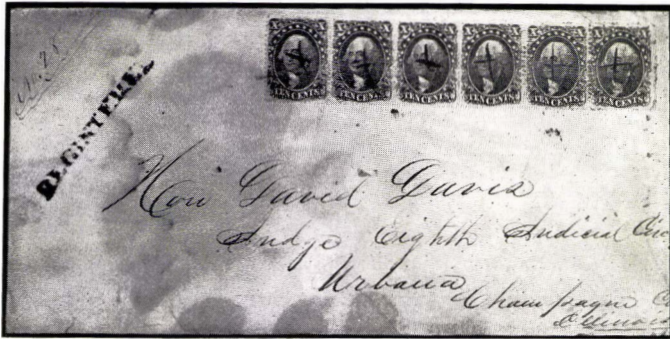 TEN CENTS. TEN CENTS. TEN CENTS. TEN CENTS. TEN CENTS. TEN CENTS.
REGISTERED
Hon David Davis
Judge Eighth Judicial
Urbana
Champagne
Illinois